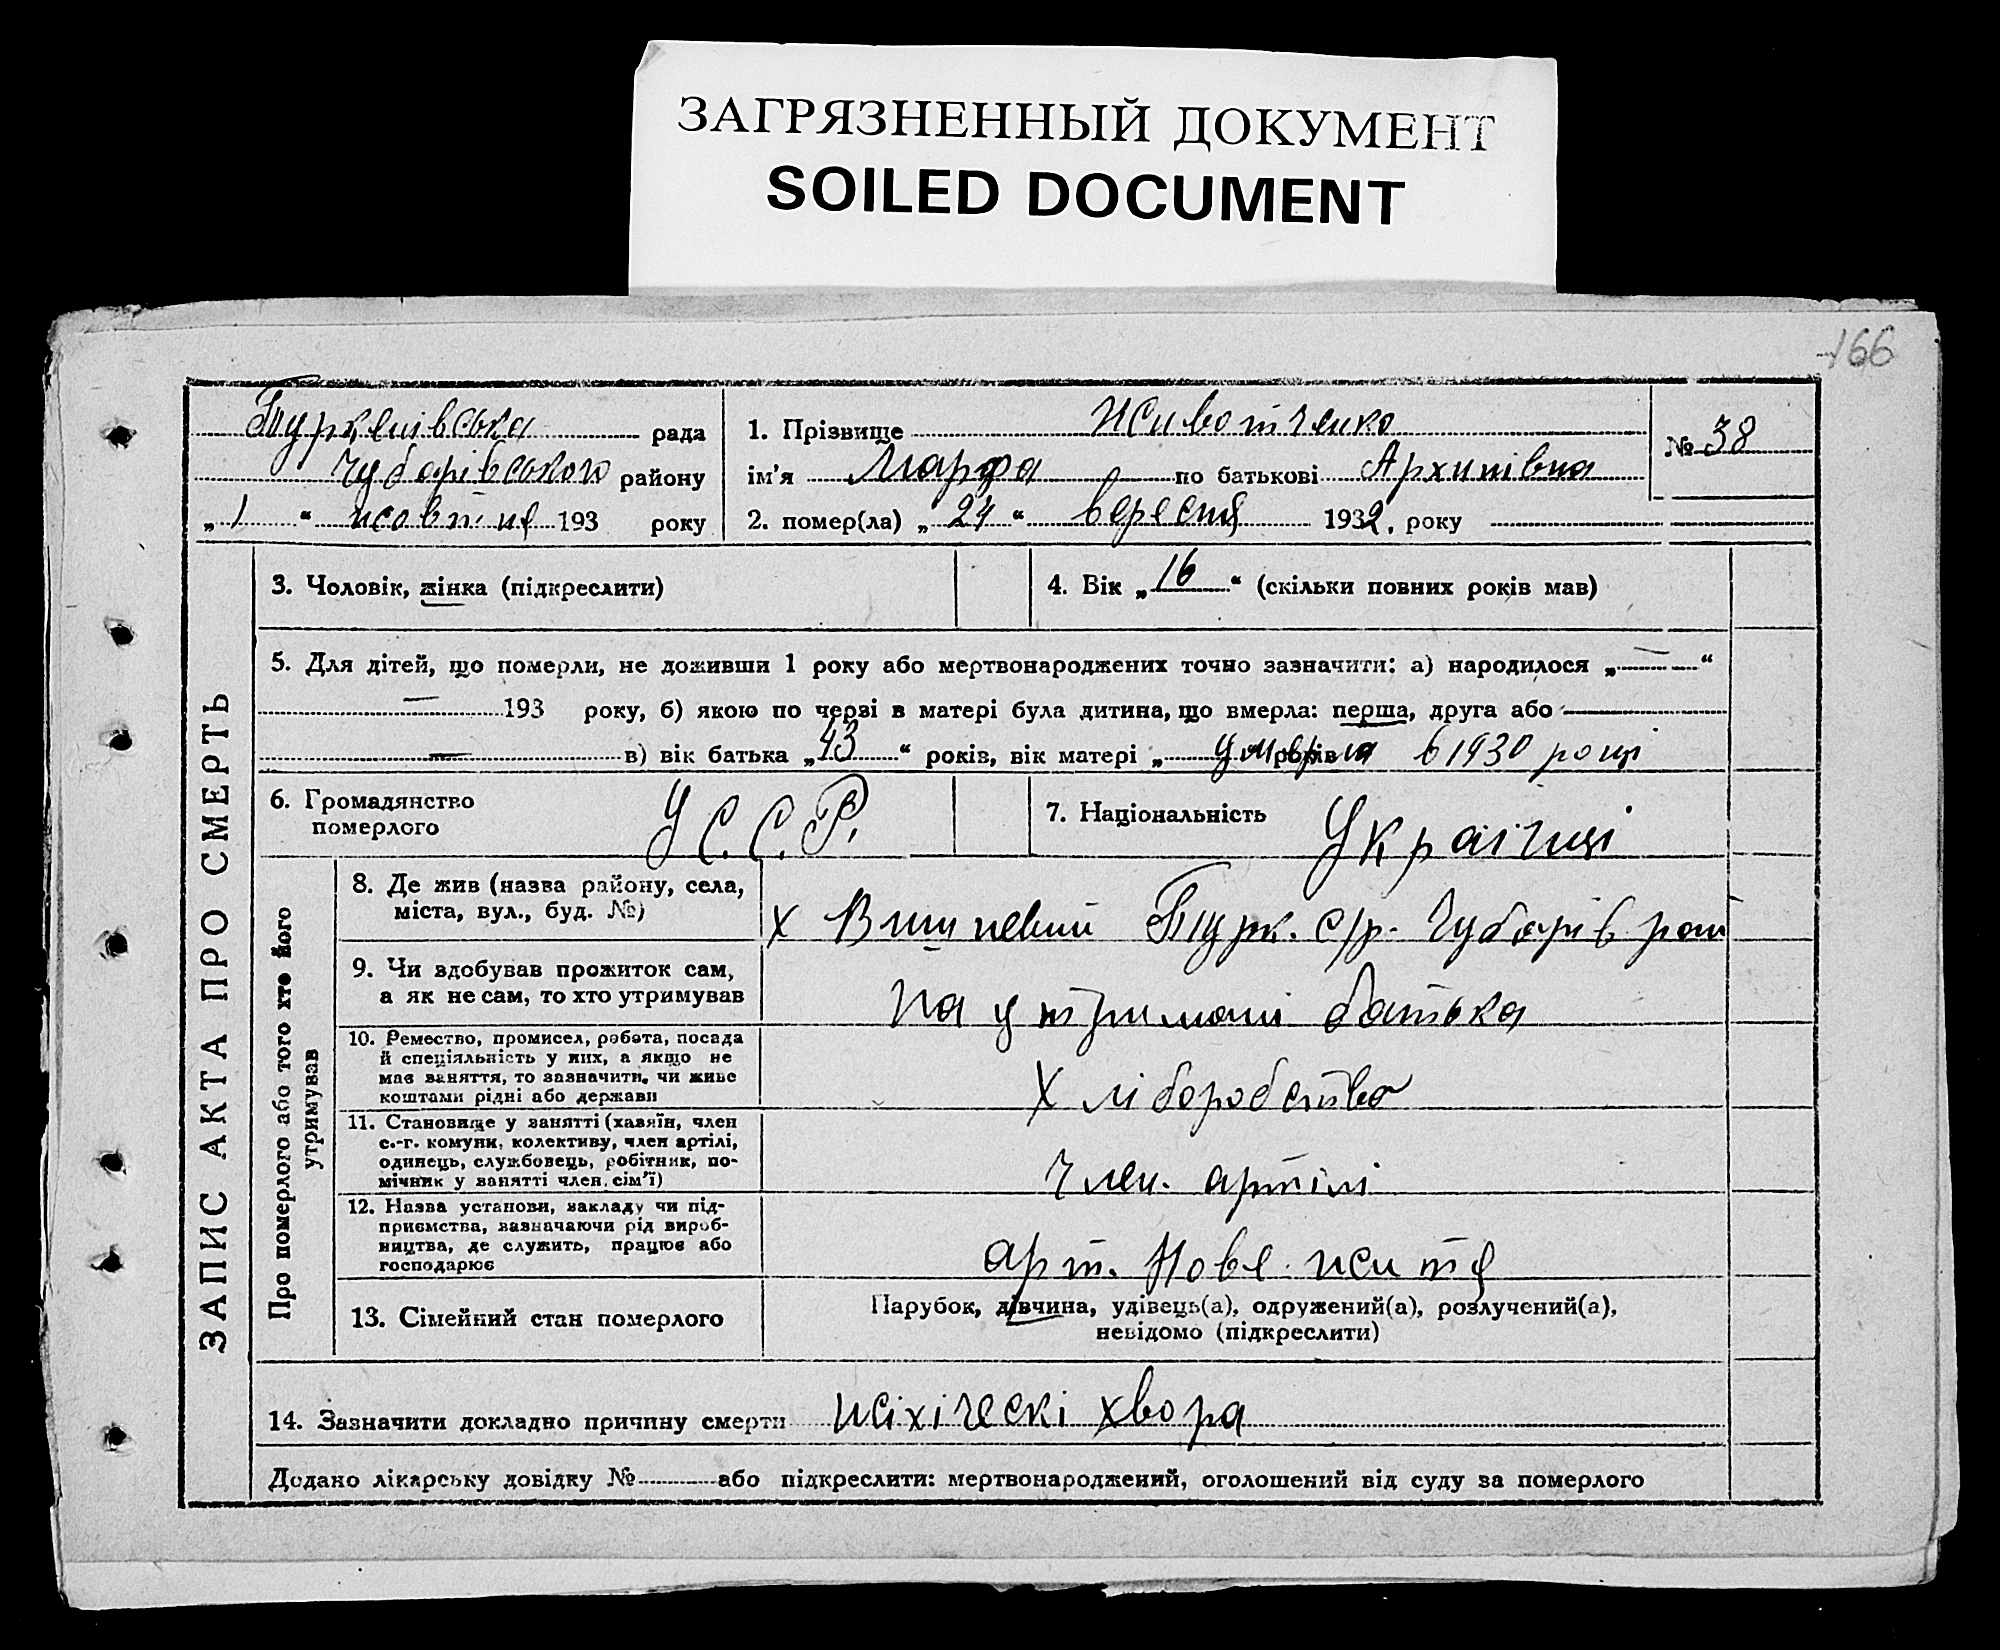 ЗАГРЯЗНЕННЫЙ ДОКУМЕНТ
SOILED DOCUMENT
166
рада
Чубарівського району
„ 1 “ жовтня 193 року
1. Прізвище Животченко
ім'я Марфа по батькові Архипівна
2. помер(ла) „ 24 “ вересня 1932. року
№ 38
ЗАПИС АКТА ПРО СМЕРТЬ
3. Чоловік, жінка (підкреслити)
4. Вік „ 16 “ (скільки повних років мав)
5. Для дітей, що померли, не доживши 1 року або мертвонароджених точно зазначити: а) народилося „ — “
— 193 року, б) якою по черзі в матері була дитина, що вмерла: перша, друга або
— в) вік батька „ 43 “ років, вік матері „ умерла “ років в 1930 році
6. Громадянство
померлого
У С. С. Р.
7. Національність
Про померлого або того хто його
утримував
8. Де жив (назва району, села,
міста, вул., буд. №)
х Вишневий Турк. с/р. Чубарів рай
9. Чи здобував прожиток сам,
а як не сам, то хто утримував
на утримані батька
10. Ремество, промисел, робота, посада
й спеціяльність у них, а якщо не
має заняття, то зазначити, чи живе
коштами рідні або держави
Хліборобство
11. Становище у занятті (хазяїн, член
с.-г. комуни, колективу, член артілі,
одинець, службовець, робітник, по-
мічник у занятті член. сім'ї)
Член. артілі
12. Назва установи, закладу чи під-
приємства, зазначаючи рід вироб-
ництва, де служить, працює або
господарює
арт. Нове життя
13. Сімейний стан померлого
Парубок, дівчина, удівець(а), одружений(а), розлучений(а),
невідомо (підкреслити)
14. Зазначити докладно причину смерти псіхіческі хвора
Додано лікарську довідку № або підкреслити: мертвонароджений, оголошений від суду за померлого